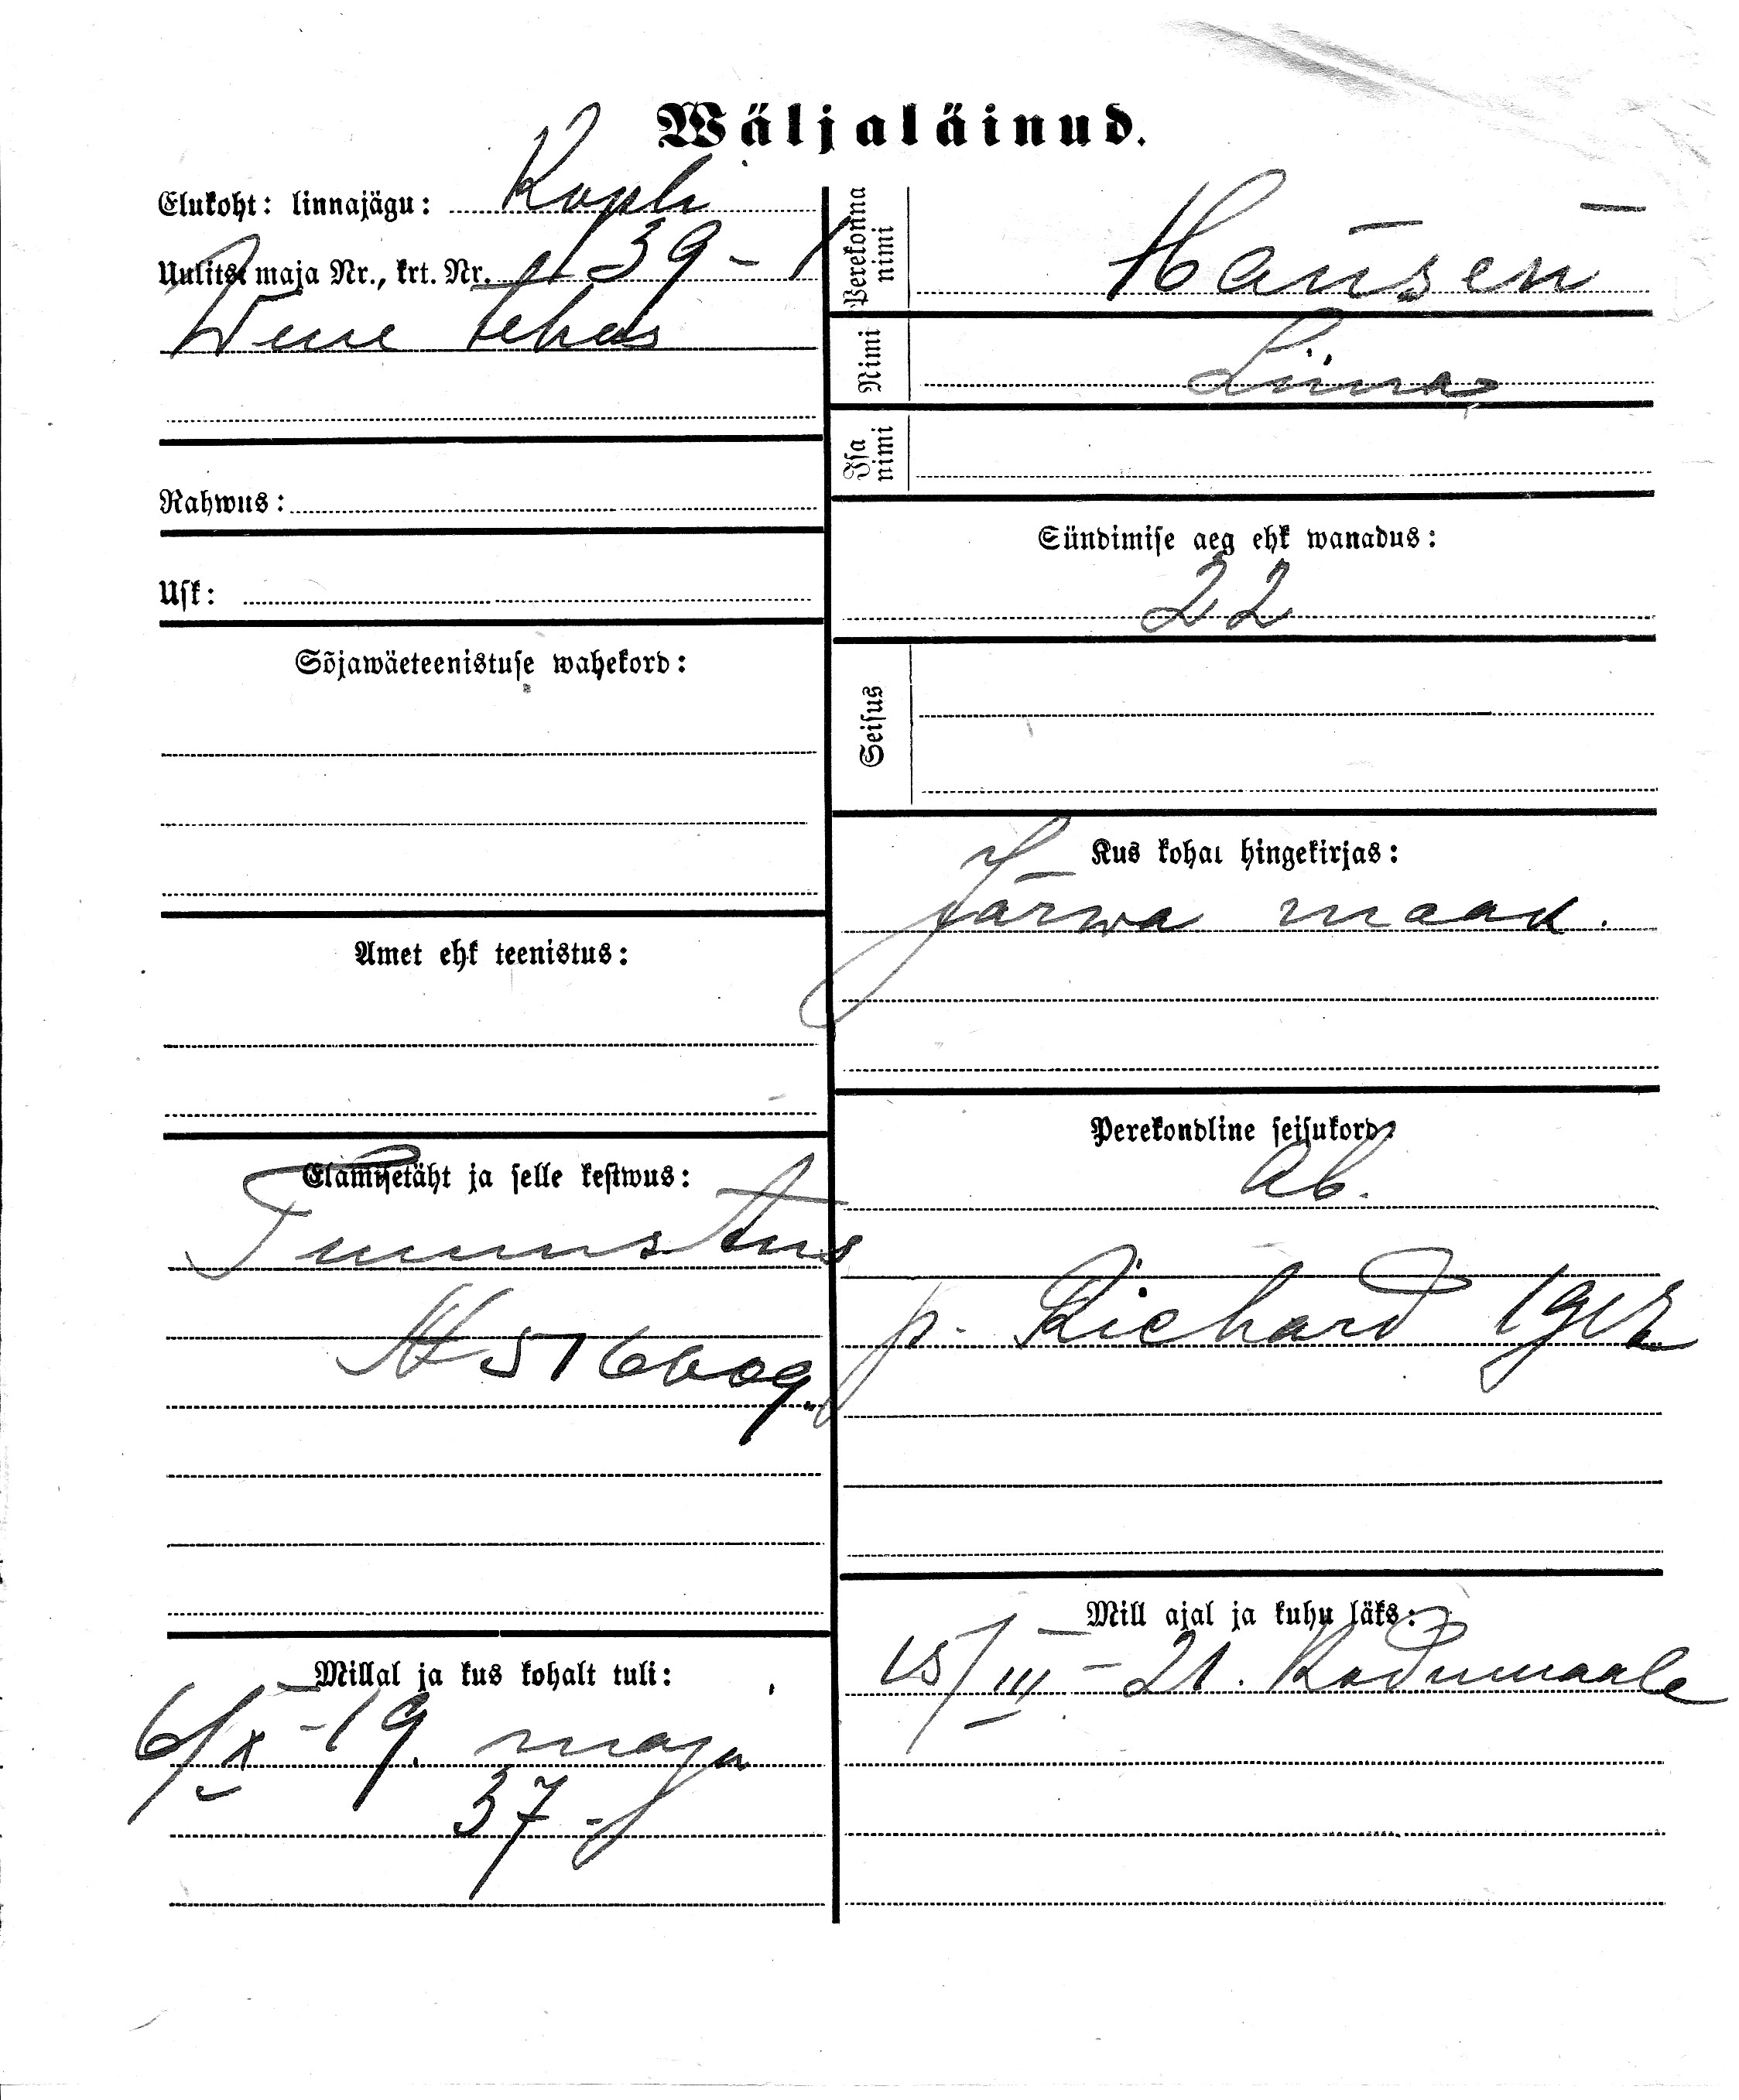 Wäljaläinud.
Elukoht: linnajägu: Kopli
Uulits, maja Nr., krt. Nr. 139-1
Wene tehas
Rahwus:
Usk:
Sõjawäeteenistuse wahekord:
Amet ehk teenistus:
Elamisetäht ja selle kestwus:
Tunnistus
№ 516609.
Millal ja kus kohalt tuli:
6/X-19. maja
37-
Perekonna nimi
Hansen
Nimi
Liina
Isa nimi
Sündimise aeg ehk wanadus:
22
Seisus
Kus kohal hingekirjas:
Järwa maak.
Perekondline seisukord:
ab.
p. Richard
Mill ajal ja kuhu läks:
15/III-21. Kodumaale